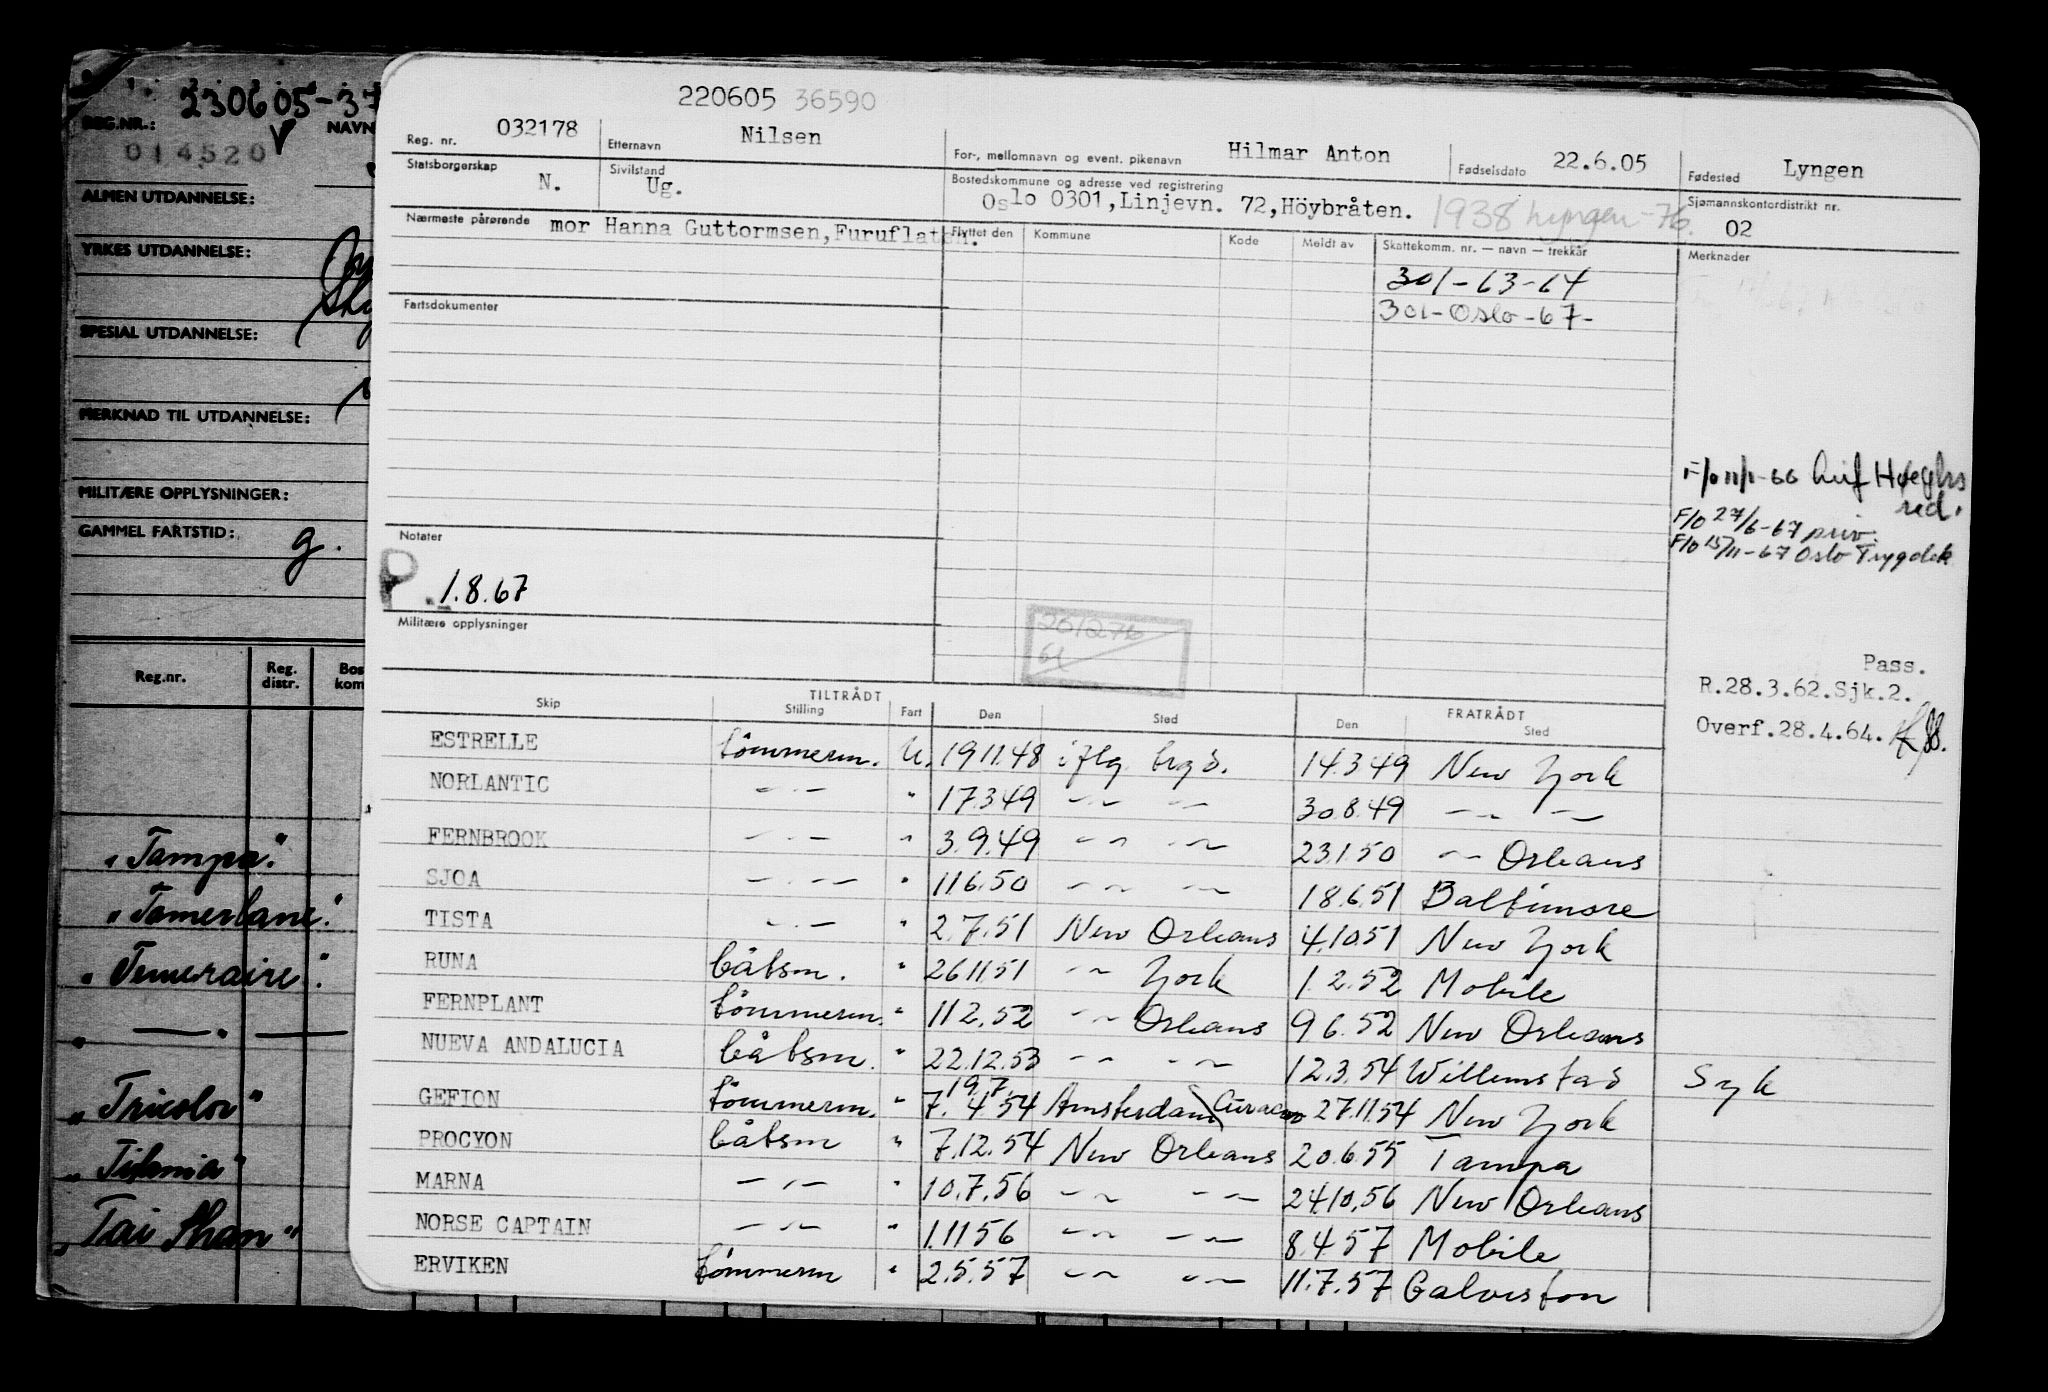 230605-37
REG.NR.: NAVN
014520
ALMEN UTDANNELSE:
YRKES UTDANNELSE:
SPESIAL UTDANNELSE:
MERKNAD TIL UTDANNELSE:
MILITÆRE OPPLYSNINGER:
GAMMEL FARTSTID: g.
Reg.nr. Reg. distr. Bos kom
"Tampa"
"Tamerlane"
"Temeraire"
" — " —
"Tricolor"
"Titania"
"Tai Shan"
220605 36590
Reg. nr. 032178 Etternavn Nilsen For-, mellomnavn og event. pikenavn Hilmar Anton Fødselsdato 22.6.05 Fødested Lyngen
Statsborgerskap N. Sivilstand Ug. Bostedskommune og adresse ved registrering Oslo 0301,Linjevn. 72,Höybråten. 1938 Lyngen-76. Sjømannskontordistrikt nr. 02
Nærmeste pårørende mor Hanna Guttormsen,Furuflaten. Flyttet den Kommune Kode Meldt av Skattekomm. nr. — navn — trekkår Merknader
301-63-64
Fartsdokumenter 301-Oslo-67-
F/o 11/1-66 Leif Höeghs
red.
F/o 27/6-67 priv.
F/o 15/11-67 Oslo Trygdek
Notater
P 1.8.67
Militære opplysninger
Pass.
R.28.3.62.Sjk.2.
Overf.28.4.64.
TILTRÅDT FRATRÅDT
Skip Stilling Fart Den Sted Den Sted
ESTRELLE tömmerm. U. 19.11.48 iflg. brg d. 14.3.49 New York
NORLANTIC — " — " 17.3.49 — " — " 30.8.49 — " — " —
FERNBROOK — " — " 3.9.49 — " — " 23.1.50 — " — Orleans
SJOA — " — " 11.6.50 — " — " 18.6.51 Baltimore
TISTA — " — " 2.7.51 New Orleans 4.10.51 New York
RUNA båtsm. " 26.11.51 — " — York 1.2.52 Mobile
FERNPLANT tömmerm. " 11.2.52 — " — Orleans 9.6.52 New Orleans
NUEVA ANDALUCIA båtsm. " 22.12.53 — " — " 12.3.54 Willemstad Syk
GEFION tömmerm. " 7.4.54 19.7. Amsterdam Curacao 27.11.54 New York
PROCYON båtsm " 7.12.54 New Orleans 20.6.55 Tampa
MARNA — " — " 10.7.56 — " — " — 24.10.56 New Orleans
NORSE CAPTAIN — " — " 1.11.56 — " — " — 8.4.57 Mobile
ERVIKEN tömmerm " 2.5.57 — " — " — 11.7.57 Galveston